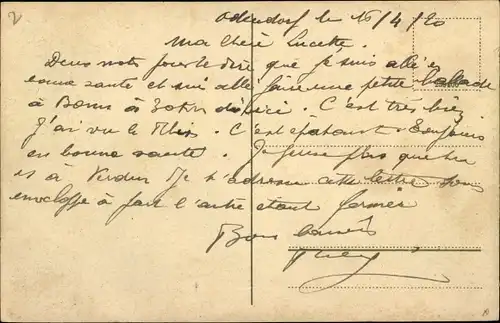 2
Odendorf le 16/4/20
Ma chère Lucette.
Deux mots pour te dire que je suis allé en
bonne santé et suis allé faire une petite balade
à Bonn à 20 km d'ici. C'est très bien
J'ai vu le Rhin. C'est épatant. Toujours
en bonne santé. Je pense pas que tu
es à Verdun Je t'adresse cette lettre sous
enveloppe à part l'autre étant fermée
Bons baisers